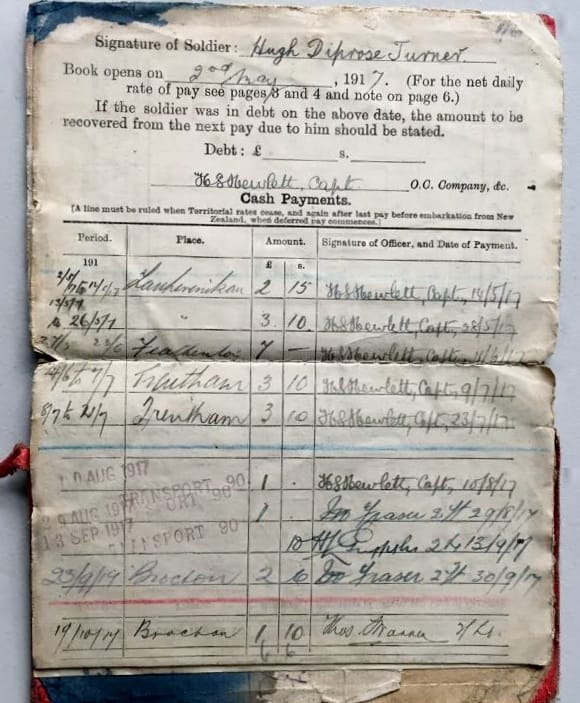 Signature of Soldier: Hugh Diprose Turner.
Book opens on 2nd May, 1917. (For the net daily
rate of pay see pages 3 and 4 and note on page 6.)
If the soldier was in debt on the above date, the amount to be
recovered from the next pay due to him should be stated.
Debt: £ s.
H S Hewlett, Capt. O.C. Company, &c.
Cash Payments.
[A line must be ruled when Territorial rates cease, and again after last pay before embarkation from New
Zealand, when deferred pay commences.]
Period. Place. Amount. Signature of Officer, and Date of Payment.
191 £ s.
2 15 H S Hewlett, Capt, 14/5/17
13/5/7
to 26/5/7 " 3. 10 H S Hewlett, Capt, 28/5/17
7 — H S Hewlett, Capt,
7/7 Trentham 3 10 H S Hewlett, Capt, 9/7/17
8/7 to 21/7 Trentham 3 10 H S Hewlett, Capt, 23/7/17
10 AUG 1917
TRANSPORT 90 1 . H S Hewlett, Capt, 10/8/17
29 AUG 1917 1 Fraser 2 Lt 29/8/17
13 SEP 1917 TRANSPORT 90 10 13/9/17
Brocton 2 6 Fraser 2 Lt 30/9/17
19/10/17 Brocton 1 10 Thos.
6 6